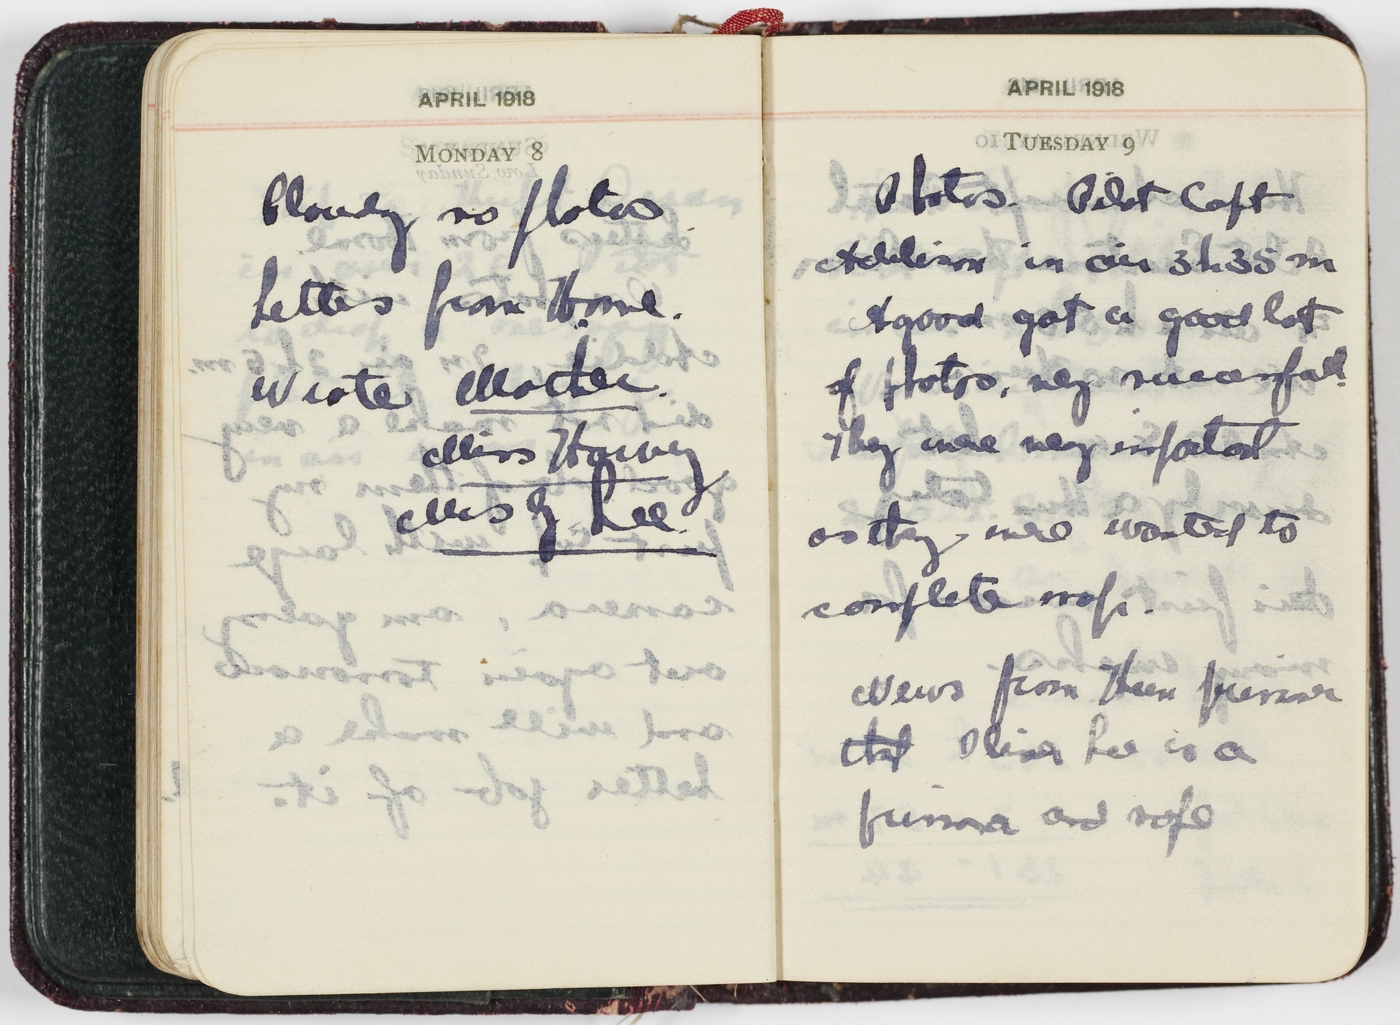 APRIL 1918
MONDAY 8
Cloudy no photos.
Letters from Home.
Wrote Mother.
Miss Harvey
Miss Lee.
APRIL 1918
TUESDAY 9
Photos. Pilot Capt
Addison in air 3h35m
got a good lot
of photos, very successful.
They were very important
as they were wanted to
complete map.
News from Hun prisoner
that Oliver Lee is a
prisoner and safe